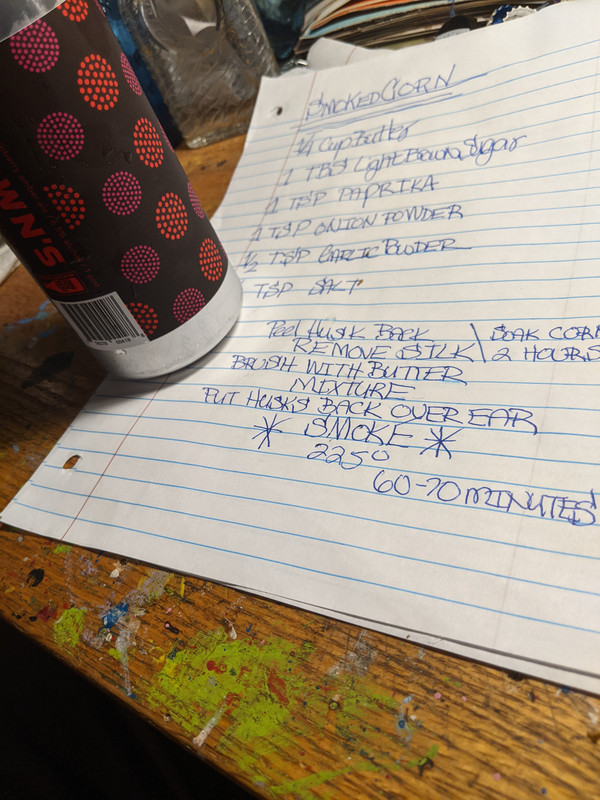 SMOKED CORN
1/4 Cup Butter
1 TBS Light Brown Sugar
1 TSP PAPRIKA
1 TSP ONION POWDER
1/2 TSP GARLIC POWDER
TSP SALT
Peel HUSK BACK
REMOVE SILK
SOAK CORN
2 HOURS
BRUSH WITH BUTTER
MIXTURE
PUT HUSKS BACK OVER EAR
* SMOKE *
225°
60-70 MINUTES
WN'S